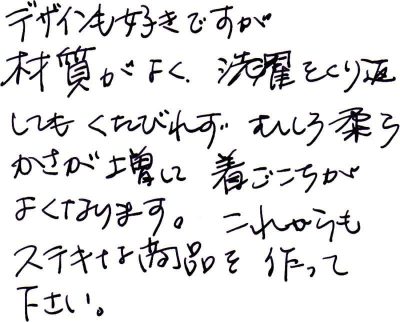 デザインも好きですが
材質がよく、洗濯をくり返
してもくたびれず むしろ柔ら
かさが増して 着ごこちが
よくなります。これからも
ステキな商品を作って
下さい。